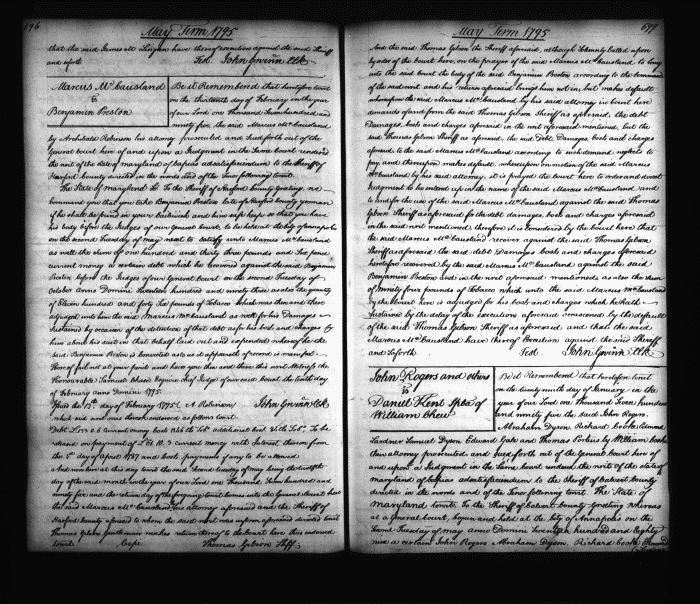 696
May Term 1795
that the said James M. Lingan have thereof execution against the said Sheriff
and so forth Test John Gwinn Clk
Marcus McCausland
vs
Benjamin Preston
Be it Remembered that heretofore to wit
on the thirteenth day of February in the year
of our Lord one thousand seven hundred and
ninety five the said Marcus McCausland
by Archibald Robinson his attorney prosecuted and sued forth out of the
General Court here of and upon a Judgment in the same Court rendered
the writ of the State of Maryland of Capias ad satisfaciendum to the Sheriff of
Harford County directed in the words and of the tenor following to wit
The State of Maryland to the Sheriff of Harford County Greeting we
command you that you take Benjamin Preston late of Harford County yeoman
if he shall be found in your bailiwick and him safe keep so that you have
his body before the Judges of our General Court, to be held at the City of Annapolis
on the second Tuesday of May next to satisfy unto Marcus McCausland
as well the sum of one hundred and thirty three pounds and five pence
current money a certain debt which he recovered against the said Benjamin
Preston before the Judges of our General Court on the second Tuesday of
October anno Domini Seventeen hundred and ninety three as also the quantity
of Eleven hundred and forty six pounds of Tobacco which was then and there
adjudged unto him the said Marcus McCausland as well for his Damages
sustained by occasion of the detention of that debt as for his costs and charges by
him about his suit in that behalf laid out and expended whereof the
said Benjamin Preston is convicted as to us it appeareth of record is manifest
Hence fail not at your peril and have you then and there this writ Witness the
Honourable Samuel Chase Esquire Chief Judge of our said Court the tenth day
of February anno Domini 1795
Issued the 13th day of February 1795 A Robinson John Gwinn Clk
Debt current money Costs Tob. additional Costs Tob. To be
released on payment of current money with Interest thereon from
the 5th day of April 1787 and Costs payment of any to be allowed
And now here at this day to wit the said Second Tuesday of May being the twelfth
day of the said month in the year of our Lord one Thousand Seven hundred and
ninety five and the return day of the foregoing to wit comes into the General Court here
the said Marcus McCausland by his attorney aforesaid and the Sheriff of
Harford County aforesaid to whom the said writ was in form aforesaid directed to wit
Thomas Gibson Gentleman makes return thereof to the Court here thus endorsed
to wit Cepi Thomas Gibson Shff.
697
May Term 1795
And the said Thomas Gibson the Sheriff aforesaid, although solemnly called upon
by order of the Court here, on the prayer of the said Marcus McCausland, to bring
into the said Court the body of the said Benjamin Preston according to the command
of the said writ and his return aforesaid brings him not in, but makes default
whereupon the said Marcus McCausland by his said attorney in Court here
demands of and from the said Thomas Gibson Sheriff as aforesaid, the debt
Damages, costs and charges aforesaid in the writ aforesaid mentioned, but the
said Thomas Gibson Sheriff as aforesaid, the said debt, Damages, costs and charges
aforesaid to the said Marcus McCausland according to such demand, neglects to
pay and thereupon makes default, whereupon on motion of the said Marcus
McCausland by his said attorney, it is prayed the Court here to order and direct
Judgment to be entered up in the name of the said Marcus McCausland and
to and for the use of the said Marcus McCausland against the said Thomas
Gibson Sheriff as aforesaid for the debt damages, costs and charges aforesaid
in the said writ mentioned, therefore it is considered by the Court here that
the said Marcus McCausland recover against the said Thomas Gibson
Sheriff as aforesaid the said debt Damages costs and charges aforesaid
heretofore recovered by the said Marcus McCausland against the said
Benjamin Preston and in the writ aforesaid mentioned as also the sum
of ninety four pounds of Tobacco which unto the said Marcus McCausland
by the Court here is adjudged for his costs and charges which he hath
sustained by the delay of the execution aforesaid occasioned by the default
of the said Thomas Gibson Sheriff as aforesaid, and that the said
Marcus McCausland have thereof Execution against the said Sheriff
and so forth Test John Gwinn Clk
John Rogers and others
vs
Daniel Kent of
William Chew
Be it Remembered that heretofore to wit
on the twenty ninth day of January in the
year of our Lord one Thousand Seven hundred
and ninety five the said John Rogers,
Abraham Dyson Richard Cooke Edmund
Lardner Samuel Dyson Edward Gale and Thomas by William Cooke
their attorney prosecuted and sued forth out of the General Court here
of and upon a Judgment in the same Court rendered the writ of the State of
Maryland of Capias ad satisfaciendum to the Sheriff of Calvert County
directed in the words and of the Tenor following to wit. The State of
Maryland to wit. To the Sheriff of Calvert County Greeting whereas
at a General Court, begun and held at the City of Annapolis on the
Second Tuesday of May anno Domini Seventeen hundred and Eighty
nine a certain John Rogers Abraham Dyson, Richard Cooke Edmund